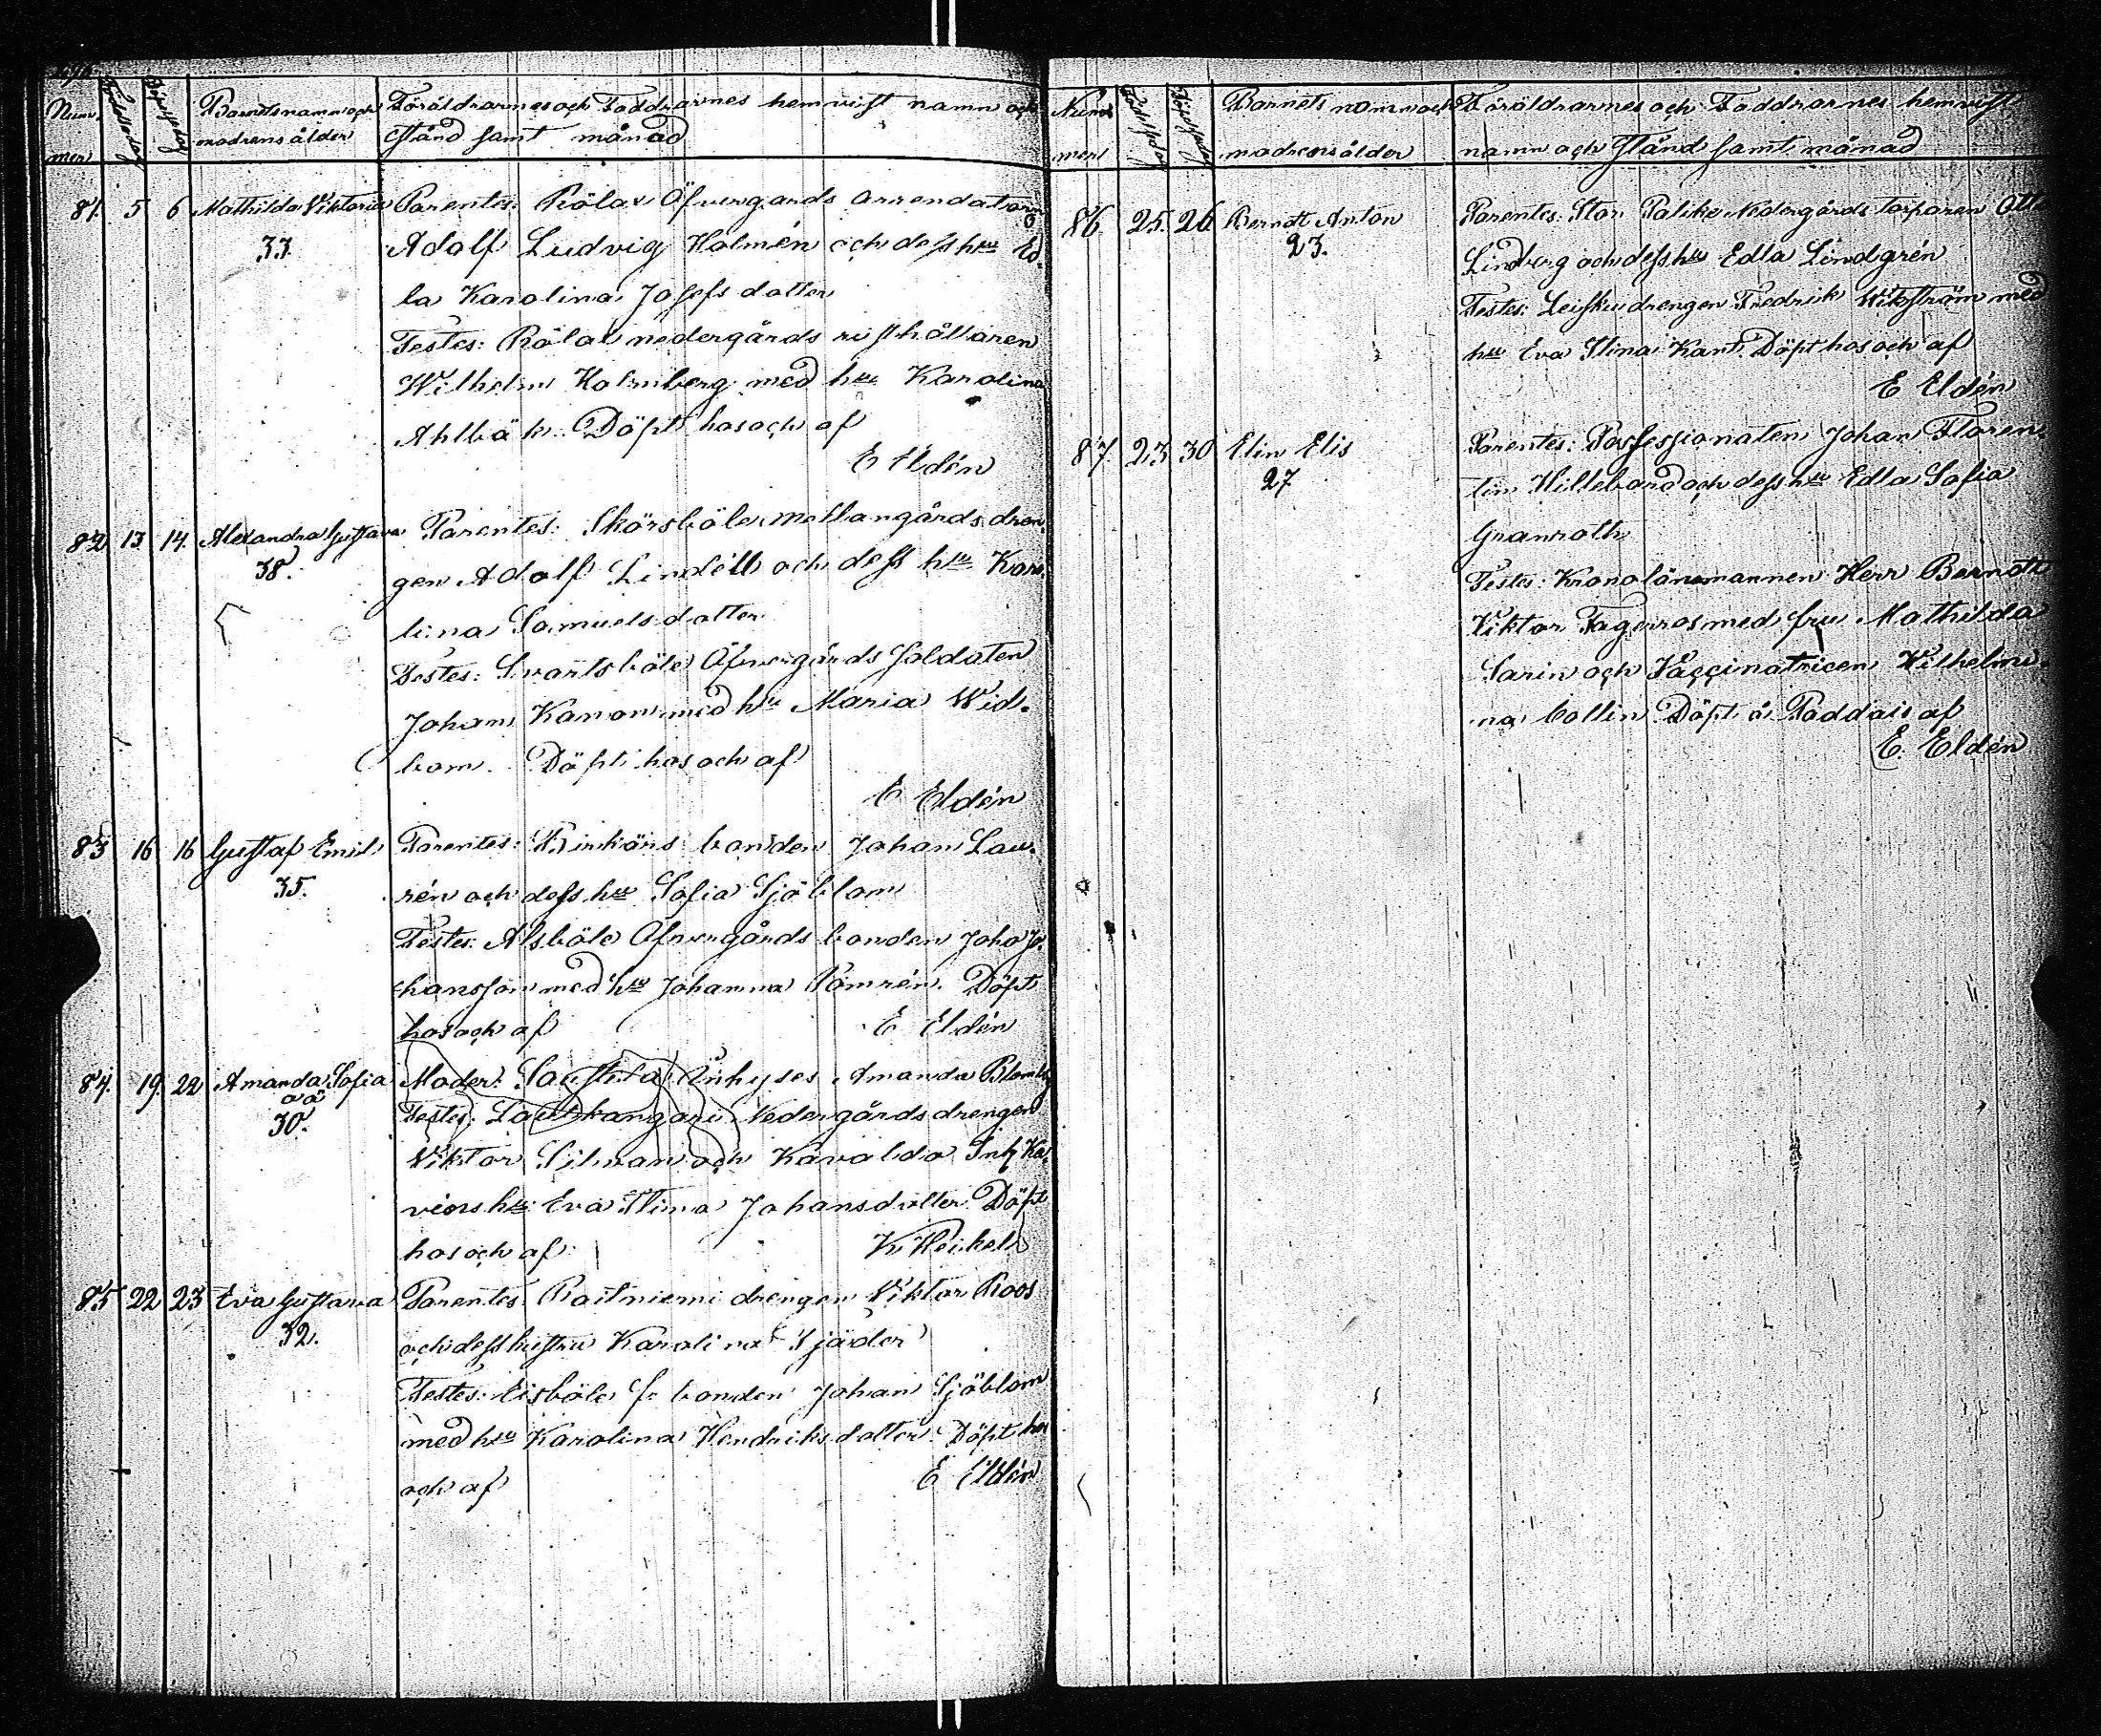 Num
mer
Födelsedag
Döpelsedag
Barnets namn och
modrens ålder
Föräldrarnes och Faddrarnes hemvist namn och
stånd samt månad
81. 5 6 Mathilda Viktoria Parentes: Rölax Öfvergårds arrendatorn
33. Adolf Ludvig Holmén och dess hu Ed.
la Karolina Josefsdotter
Testes: Rölax nedergårds rusthållaren
Wilhelm Holmberg med hu Karolina
Ahlbäk. Döpt hos och af
E Eldén
82 13 14. Alexandra Gustava Parentes: Skörsböle mellangårds dren.
38. gen Adolf Lindell och dess hu Karo.
lina Samuelsdotter
Testes: Svartsböle Öfvergårds soldaten
Johan Kanon med hu Maria Wid.
bom. Döpt hos och af
E Eldén
83 16 16 Gustaf Emil Parentes: bonden Johan Lau.
35. rén och dess hu Sofia Sjöblom
Testes: Alsböle Öfvergårds bonden Joha Jo.
hansson med hu Johanna Pomrén. Döpt
hos och af E Eldén
84. 19. 22 Amanda Sofia Moder: Inhyses Amanda Blomberg
oä
30. Testes: Nedergårds drengen
Viktor Silvan och Kavalda Inh Ka.
viers hu Eva Stina Johansdotter Döpt
hos och af K Heikel
85 22 23 Eva Gustava Parentes Raitniemi drengen Viktor Roos
32. och dess hustru Karolina Sjöder
Testes: Eisböle bonden Johan Sjöblom
med hu Karolina Hendriksdotter. Döpt hos
och af E Eldén
Num
mer
Födelsedag
Döpelsedag
Barnets namn och
modrens ålder
Föräldrarnes och Faddrarnes hemvist
namn och stånd samt månad
86. 25. 26 Berndt Anton Parentes: Stor Palike Nedergårds torparen Otto
23. Lindberg och dess hu Edla Lindgrén
Testes: Leisku drengen Fredrik Wikström med
hu Eva Stina Kant. Döpt hos och af
E Eldén
87. 23 30 Elin Elis Parentes: Possessionaten Johan Floren.
27 tin Hillebard och dess hu Edla Sofia
Granroth
Testes: Kronolänsmannen Herr Berndt
Viktor Fagerros med fru Mathilda
Sarin och Vaccinatricen Wilhelmi.
na Collin Döpt å Paddais af
E. Eldén